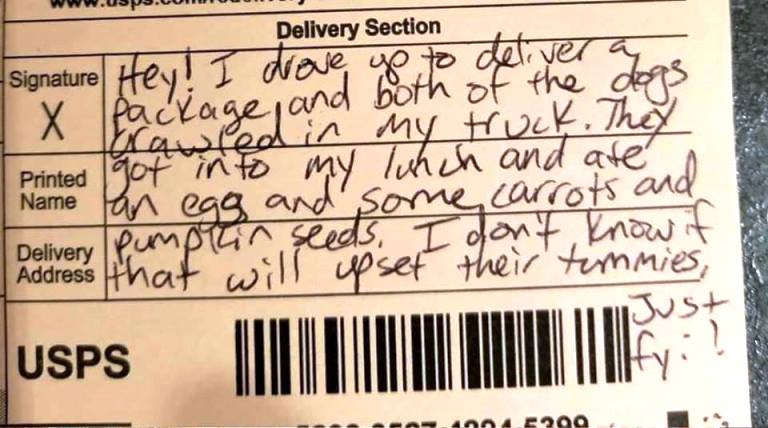 Delivery Section
Signature
X
Hey! I drove up to deliver a
package and both of the dogs
crawled in my truck. They
Printed
Name
got into my lunch and ate
an egg and some carrots and
Delivery
Address
pumpkin seeds. I don't know if
that will upset their tummies,
Just
fyi!
USPS